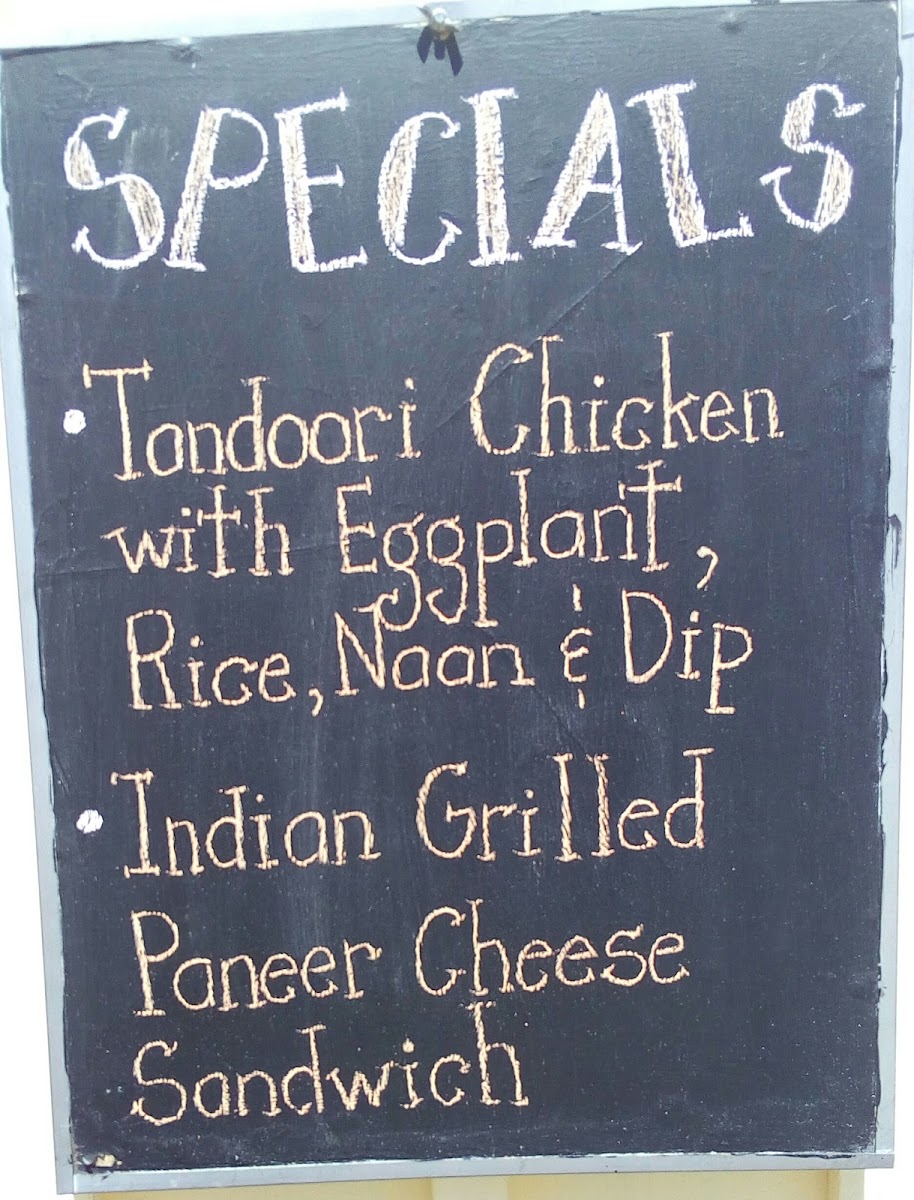 SPECIALS
• Tandoori Chicken
with Eggplant,
Rice, Naan & Dip
• Indian Grilled
Paneer Cheese
Sandwich